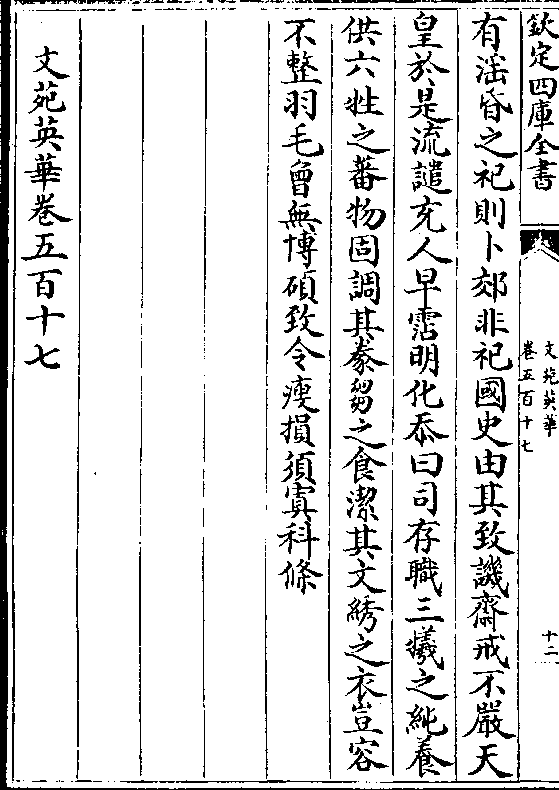 欽定四庫全書
文苑英華
卷五百十七
十二
有淫昏之祀則卜郊非祀國史由其致譏齋戒不嚴天
皇於是流譴充人早霑明化忝曰司存職三犧之純養
供六牲之蕃物固調其豢芻之食潔其文綉之衣豈容
不整羽毛曾無博碩致令瘦損須寘科條
文苑英華卷五百十七